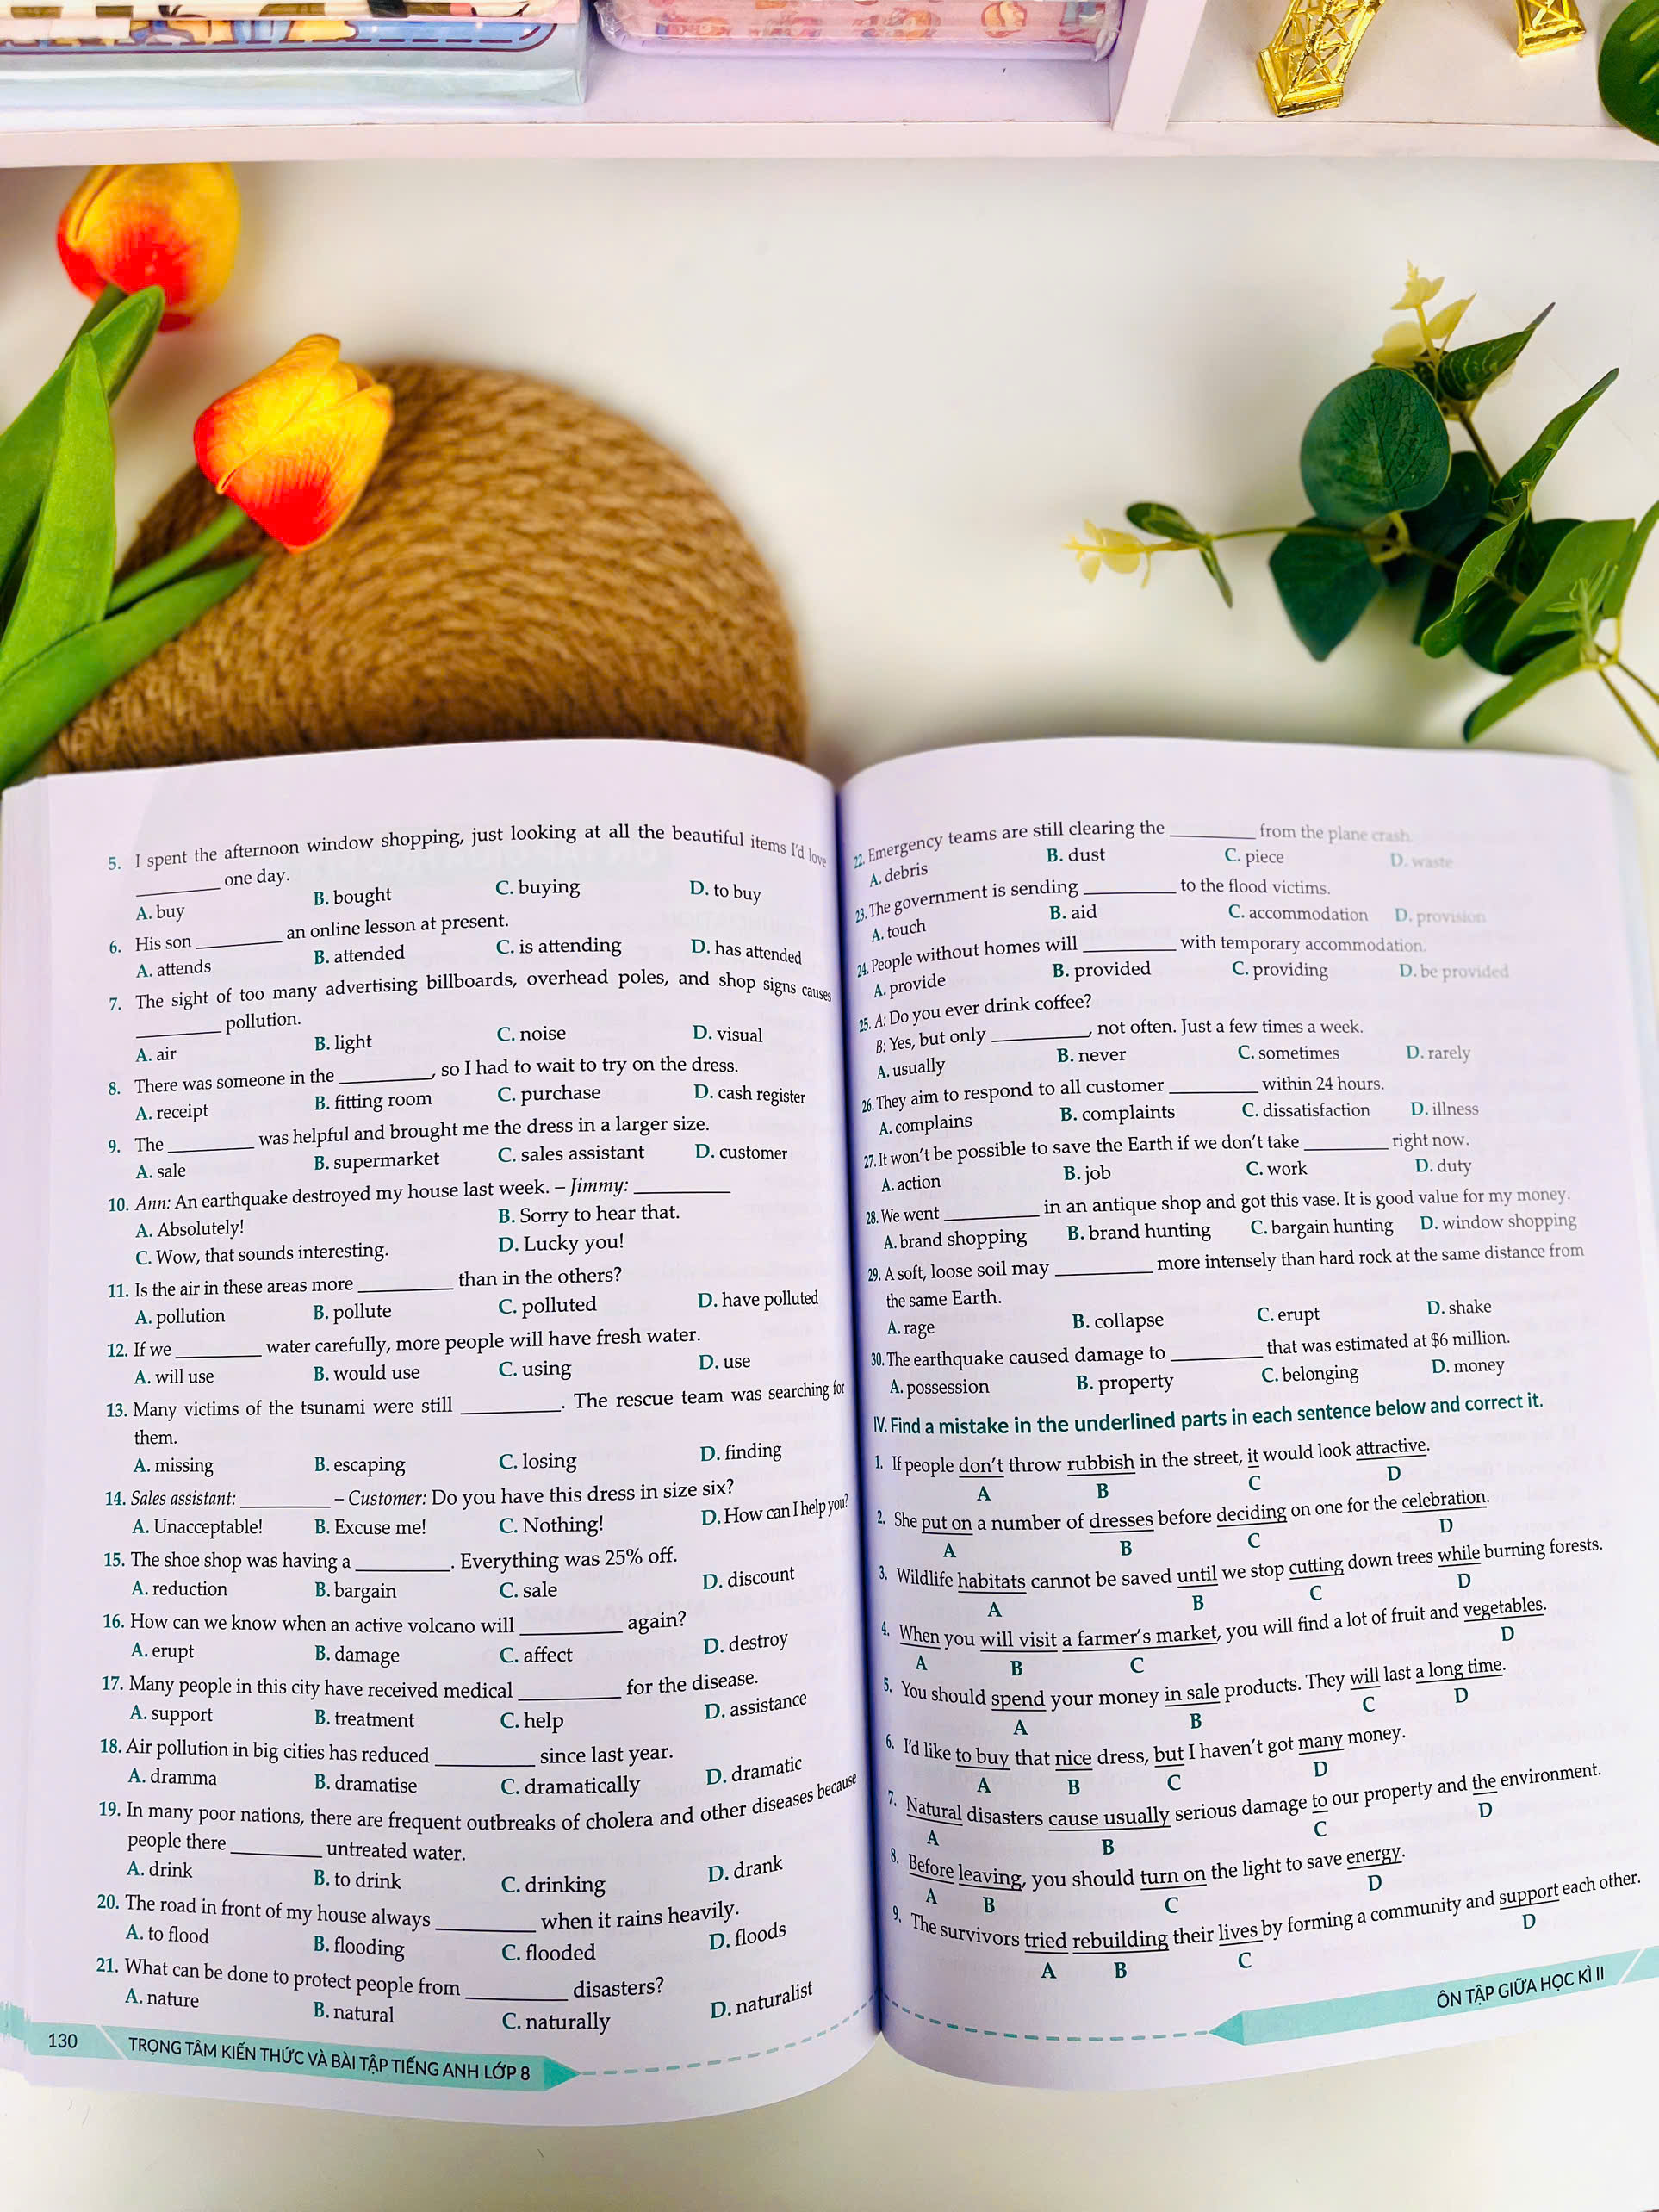 5. I spent the afternoon window shopping, just looking at all the beautiful items I'd love
_________ one day.
A. buy B. bought C. buying D. to buy
6. His son _________ an online lesson at present.
A. attends B. attended C. is attending D. has attended
7. The sight of too many advertising billboards, overhead poles, and shop signs causes
_________ pollution.
A. air B. light C. noise D. visual
8. There was someone in the _________, so I had to wait to try on the dress.
A. receipt B. fitting room C. purchase D. cash register
9. The _________ was helpful and brought me the dress in a larger size.
A. sale B. supermarket C. sales assistant D. customer
10. Ann: An earthquake destroyed my house last week. – Jimmy: _________
A. Absolutely! B. Sorry to hear that.
C. Wow, that sounds interesting. D. Lucky you!
11. Is the air in these areas more _________ than in the others?
A. pollution B. pollute C. polluted D. have polluted
12. If we _________ water carefully, more people will have fresh water.
A. will use B. would use C. using D. use
13. Many victims of the tsunami were still _________. The rescue team was searching for
them.
A. missing B. escaping C. losing D. finding
14. Sales assistant: _________ – Customer: Do you have this dress in size six?
A. Unacceptable! B. Excuse me! C. Nothing! D. How can I help you?
15. The shoe shop was having a _________. Everything was 25% off.
A. reduction B. bargain C. sale D. discount
16. How can we know when an active volcano will _________ again?
A. erupt B. damage C. affect D. destroy
17. Many people in this city have received medical _________ for the disease.
A. support B. treatment C. help D. assistance
18. Air pollution in big cities has reduced _________ since last year.
A. dramma B. dramatise C. dramatically D. dramatic
19. In many poor nations, there are frequent outbreaks of cholera and other diseases because
people there _________ untreated water.
A. drink B. to drink C. drinking D. drank
20. The road in front of my house always _________ when it rains heavily.
A. to flood B. flooding C. flooded D. floods
21. What can be done to protect people from _________ disasters?
A. nature B. natural C. naturally D. naturalist
130 TRỌNG TÂM KIẾN THỨC VÀ BÀI TẬP TIẾNG ANH LỚP 8
22. Emergency teams are still clearing the _________ from the plane crash.
A. debris B. dust C. piece D. waste
23. The government is sending _________ to the flood victims.
A. touch B. aid C. accommodation D. provision
24. People without homes will _________ with temporary accommodation.
A. provide B. provided C. providing D. be provided
25. A: Do you ever drink coffee?
B: Yes, but only _________, not often. Just a few times a week.
A. usually B. never C. sometimes D. rarely
26. They aim to respond to all customer _________ within 24 hours.
A. complains B. complaints C. dissatisfaction D. illness
27. It won't be possible to save the Earth if we don't take _________ right now.
A. action B. job C. work D. duty
28. We went _________ in an antique shop and got this vase. It is good value for my money.
A. brand shopping B. brand hunting C. bargain hunting D. window shopping
29. A soft, loose soil may _________ more intensely than hard rock at the same distance from
the same Earth.
A. rage B. collapse C. erupt D. shake
30. The earthquake caused damage to _________ that was estimated at $6 million.
A. possession B. property C. belonging D. money
IV. Find a mistake in the underlined parts in each sentence below and correct it.
1. If people don't throw rubbish in the street, it would look attractive.
A B C D
2. She put on a number of dresses before deciding on one for the celebration.
A B C D
3. Wildlife habitats cannot be saved until we stop cutting down trees while burning forests.
A B C D
4. When you will visit a farmer's market, you will find a lot of fruit and vegetables.
A B C D
5. You should spend your money in sale products. They will last a long time.
A B C D
6. I'd like to buy that nice dress, but I haven't got many money.
A B C D
7. Natural disasters cause usually serious damage to our property and the environment.
A B C D
8. Before leaving, you should turn on the light to save energy.
A B C D
9. The survivors tried rebuilding their lives by forming a community and support each other.
A B C D
ÔN TẬP GIỮA HỌC KÌ II